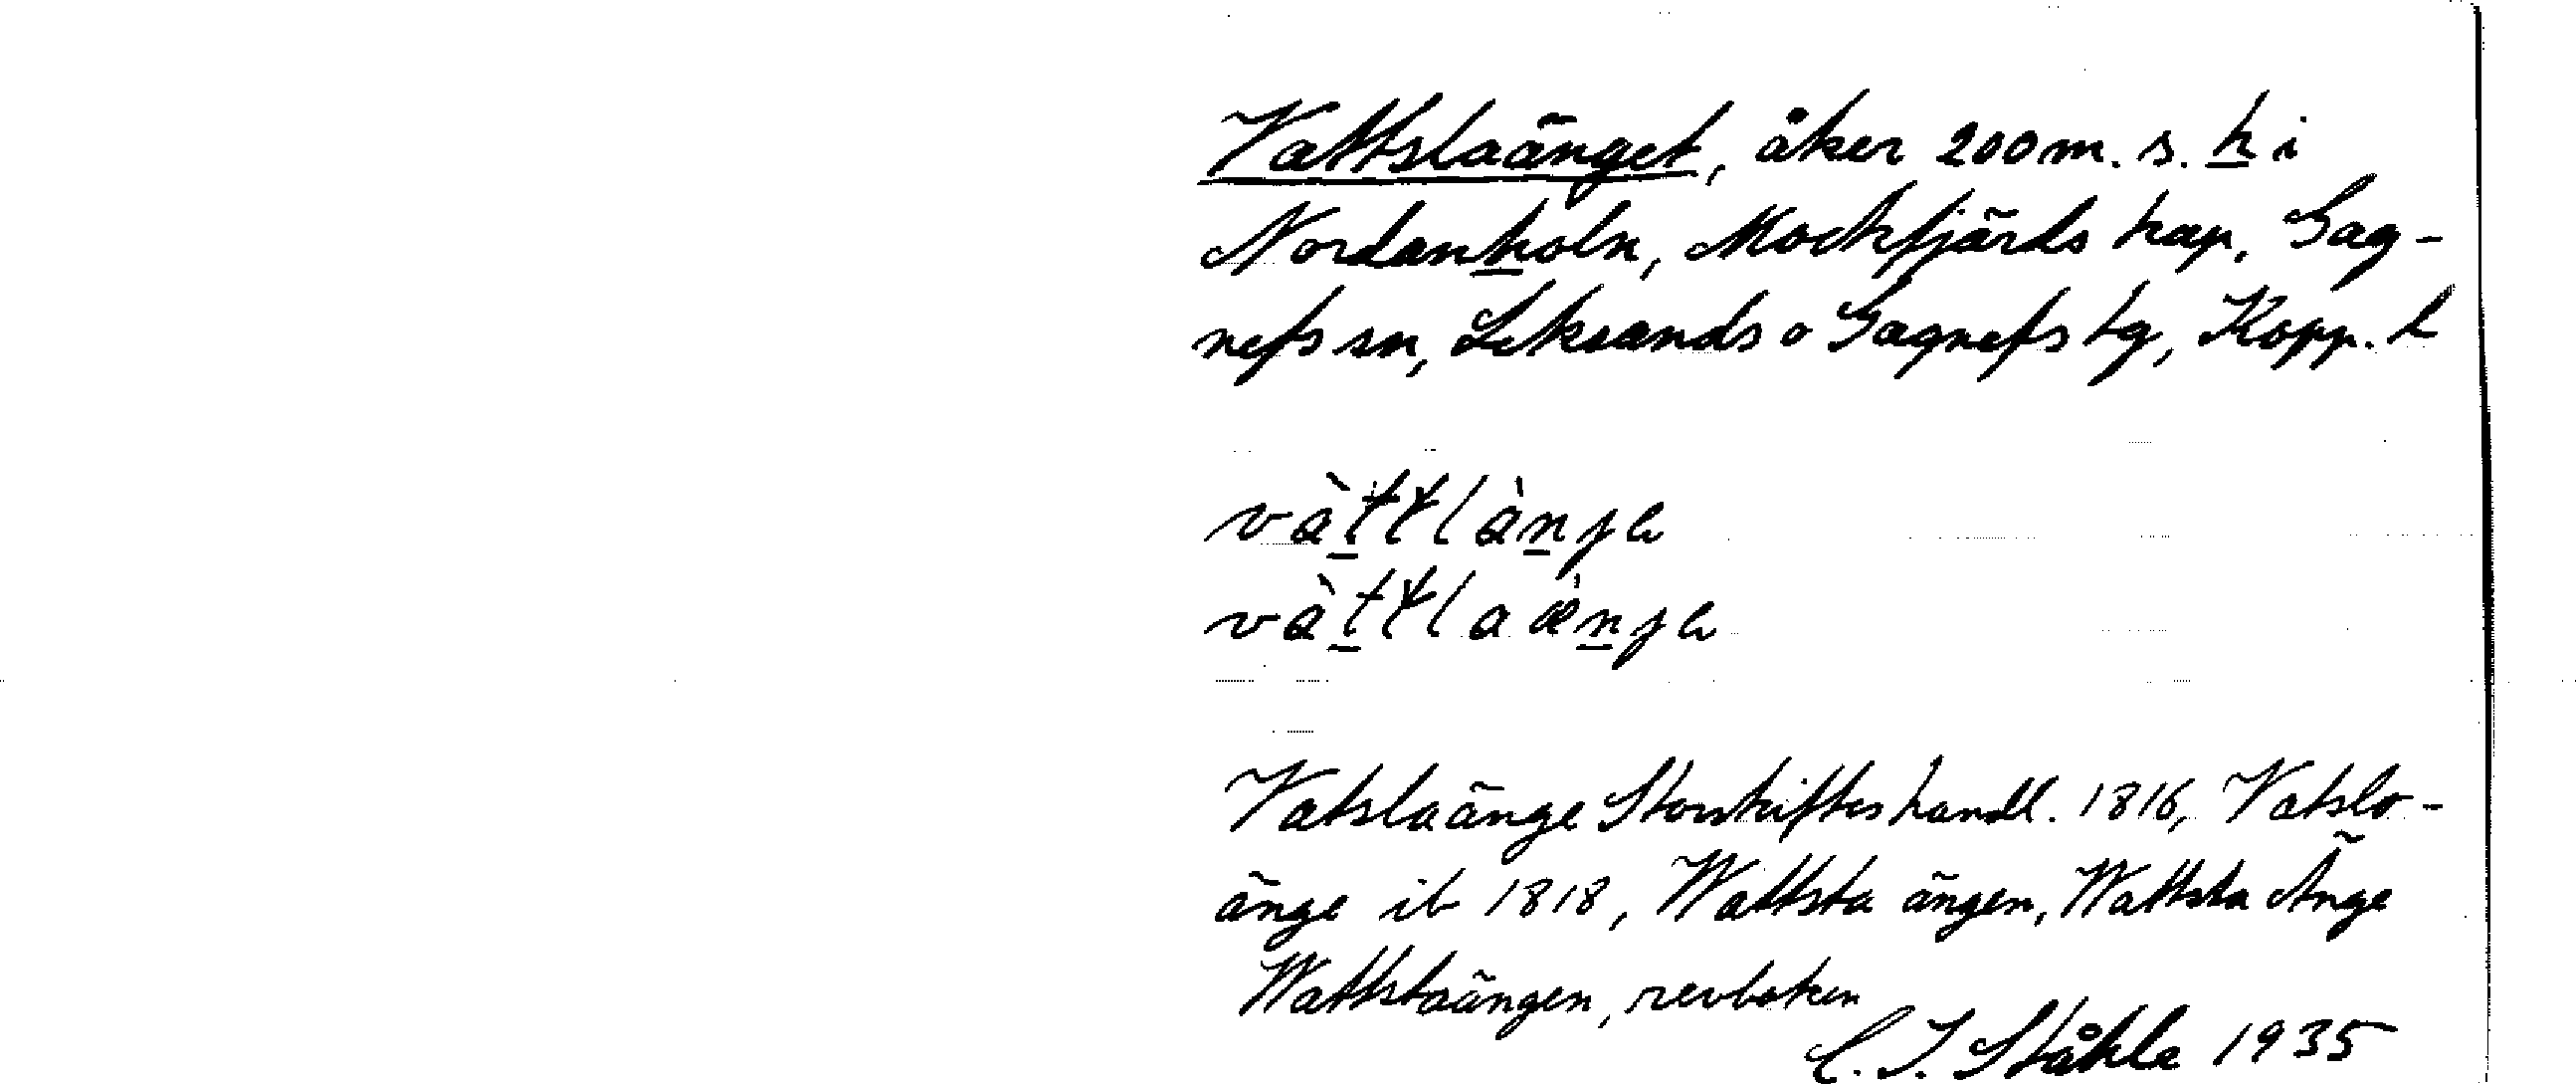 Vattslaänget, åker 200 m. s. k i
Nordankoln, Mockfjärds kap, Gag-
nefs sn, Leksands o Gagnefs tg, Kopp. l
Vatslaänge Storskifteshandl. 1816, Vatslo-
änge ib 1818, Wattsta ängen, Wattsta Änge
Wattstaängen, revboken
C. I. Ståhle 1935